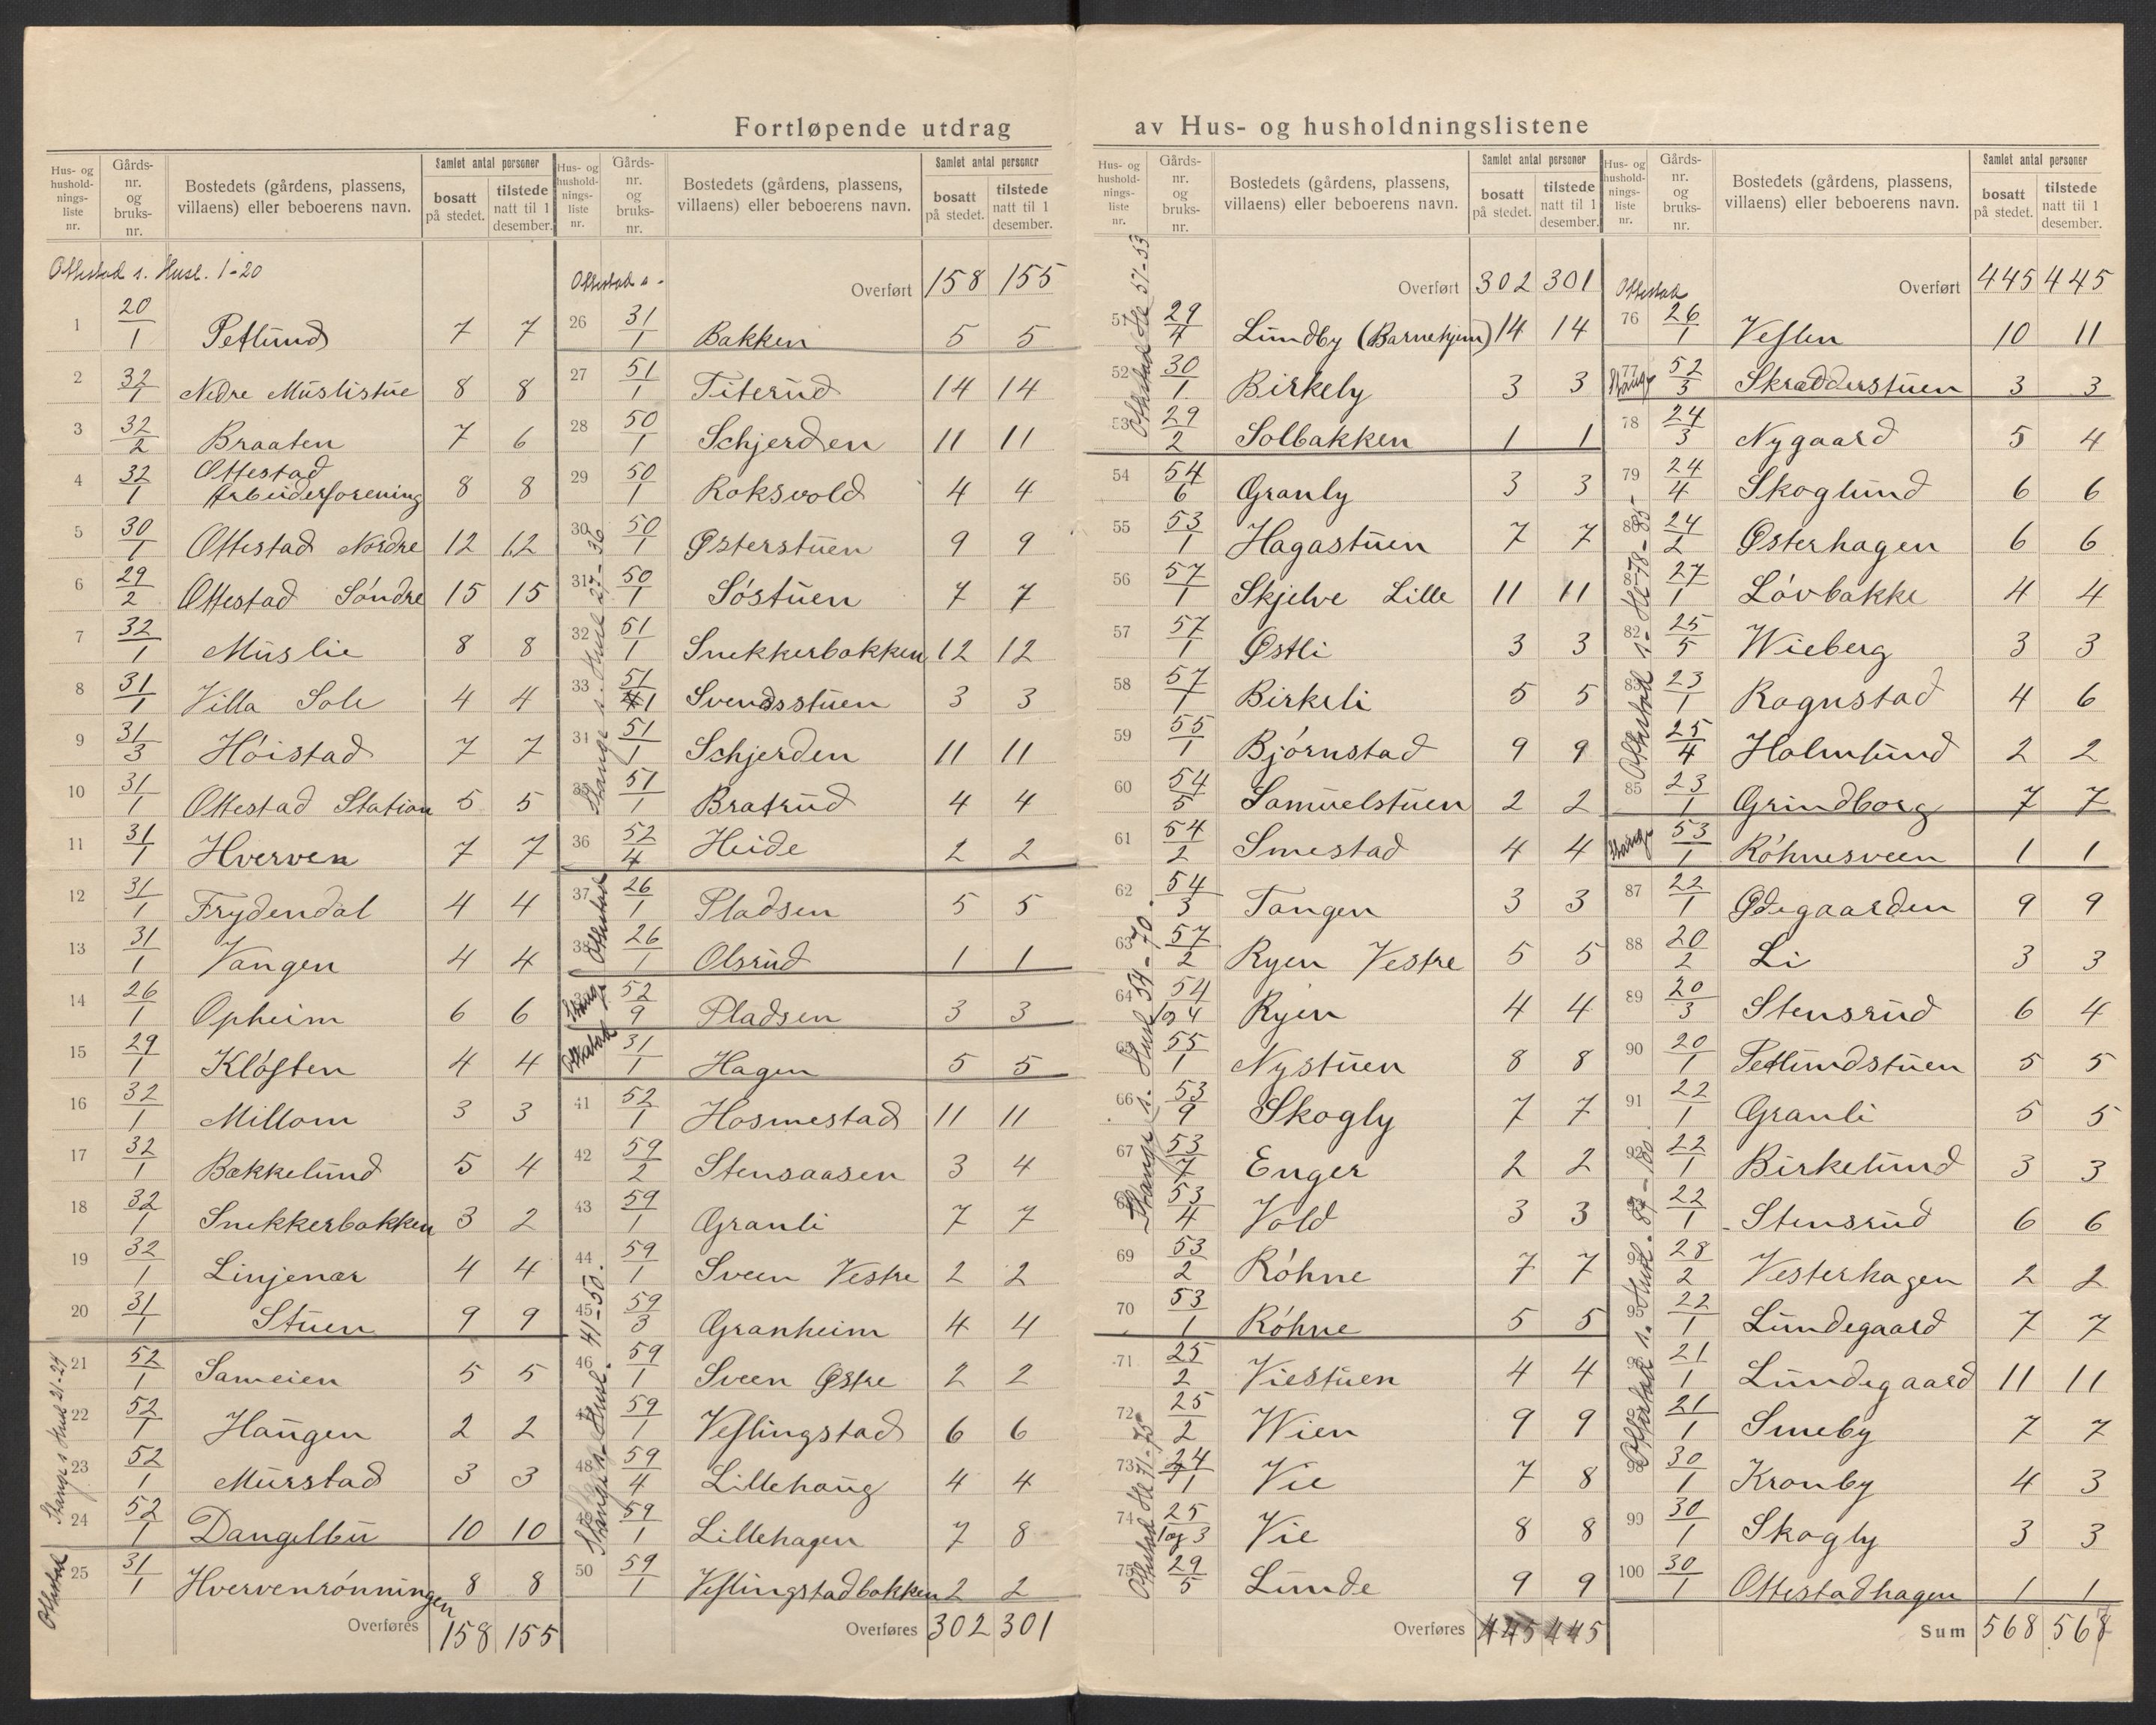 Fortløpende utdrag av Hus- og husholdningslistene
Hus- og husholdningsliste nr. Gårds-nr. og bruks-nr. Bostedets (gårdens, plassens, villaens) eller beboerens navn. Samlet antal personer bosatt på stedet. tilstede natt til 1 desember.
Ottestad s. Husl. 1-20
1 20/1 Petlund 7 7
2 32/1 Nedre Muslistue 8 8
3 32/2 Braaten 7 6
4 32/1 Ottestad Arbeiderforening 8 8
5 30/1 Ottestad Nordre 12 12
6 29/2 Ottestad Söndre 15 15
7 32/1 Muslie 8 8
8 31/1 Villa Sole 4 4
9 31/3 Höistad 7 7
10 31/1 Ottestad Station 5 5
11 31/1 Hverven 7 7
12 31/1 Frydendal 4 4
13 31/1 Vangen 4 4
14 26/1 Opheim 6 6
15 29/1 Klöften 4 4
16 32/1 Millom 3 3
17 32/1 Bækkelund 5 4
18 32/1 Snekkerbakken 3 2
19 32/1 Linjenær 4 4
20 31/1 Stuen 9 9
Stange s Husl 21-24
21 52/1 Sameien 5 5
22 52/1 Haugen 2 2
23 52/1 Murstad 3 3
24 52/1 Dangelbu 10 10
Ottestad
25 31/1 Hvervenrönningen 8 8
Overføres 158 155
Hus- og husholdningsliste nr. Gårds-nr. og bruks-nr. Bostedets (gårdens, plassens, villaens) eller beboerens navn. Samlet antal personer bosatt på stedet. tilstede natt til 1 desember.
Ottestad s. Overført 158 155
26 31/1 Bakken 5 5
Stange s. Husl 27-36
27 51/1 Titerud 14 14
28 50/1 Schjerden 11 11
29 50/1 Roksvold 4 4
30 50/1 Østerstuen 9 9
31 50/1 Söstuen 7 7
32 51/1 Snekkerbakken 12 12
33 51/1 Svendsstuen 3 3
34 51/1 Schjerden 11 11
35 51/1 Bratrud 4 4
36 52/4 Heide 2 2
Ottestad
37 26/1 Pladsen 5 5
38 26/1 Olsrud 1 1
Stange
52/9 Pladsen 3 3
Ottestad
31/1 Hagen 5 5
Stange s. Husl. 41-50.
41 52/1 Hosmestad 11 11
42 59/2 Stensaasen 3 4
43 59/1 Granli 7 7
44 59/1 Sveen Vestre 2 2
45 59/3 Granheim 4 4
46 59/1 Sveen Østre 2 2
59/1 Veslingstad 6 6
48 59/4 Lillehaug 4 4
59/1 Lillehagen 7 8
50 59/1 Veslingstadbakken 2 2
Overføres 302 301
Hus- og husholdningsliste nr. Gårds-nr. og bruks-nr. Bostedets (gårdens, plassens, villaens) eller beboerens navn. Samlet antal personer bosatt på stedet. tilstede natt til 1 desember.
Overført 302 301
Ottestad Hl 51-53
51 29/4 Lundby (Barnehjem) 14 14
52 30/1 Birkely 3 3
53 29/2 Solbakken 1 1
Stange s. Husl 54-70.
54 54/6 Granly 3 3
55 53/1 Hagastuen 7 7
56 57/1 Skjelve Lille 11 11
57 57/1 Østli 3 3
58 57/1 Birkeli 5 5
59 55/1 Björnstad 9 9
60 54/5 Samuelstuen 2 2
61 54/2 Smestad 4 4
62 54/3 Tangen 3 3
63 57/2 Ryen Vestre 5 5
64 54/1 og 4 Ryen 4 4
55/1 Nystuen 8 8
66 53/9 Skogly 7 7
67 53/7 Enger 2 2
53/4 Vold 3 3
69 53/2 Röhne 7 7
70 53/1 Röhne 5 5
Ottestad Hl 71-75
71 25/2 Viestuen 4 4
72 25/2 Wien 9 9
73 24/1 Vie 7 8
74 25/1 og 3 Vie 8 8
75 29/5 Lunde 9 9
Overføres 445 445
Hus- og husholdningsliste nr. Gårds-nr. og bruks-nr. Bostedets (gårdens, plassens, villaens) eller beboerens navn. Samlet antal personer bosatt på stedet. tilstede natt til 1 desember.
Ottestad Overført 445 445
76 26/1 Veslen 10 11
Stange
77 52/3 Skrædderstuen 3 3
Ottestad s. Hl 78-85
78 24/3 Nygaard 5 4
79 24/4 Skoglund 6 6
80 24/2 Østerhagen 6 6
27/1 Lövbakke 4 4
82 25/5 Wieberg 3 3
23/1 Ragnstad 4 6
25/4 Holmlund 2 2
85 23/1 Grindborg 7 7
Stange
53/1 Röhnesveen 1 1
Ottestad s. Husl. 87-100.
87 22/1 Ødegaarden 9 9
88 20/2 Li 3 3
89 20/3 Stensrud 6 4
90 20/1 Petlundstuen 5 5
91 22/1 Granli 5 5
92 22/1 Birkelund 3 3
22/1 Stensrud 6 6
28/2 Vesterhagen 2 2
95 22/1 Lundegaard 7 7
21/1 Lundegaard 11 11
21/1 Smeby 7 7
98 30/1 Kronby 4 3
99 30/1 Skogly 3 3
100 30/1 Ottestadhagen 1 1
Sum 568 568